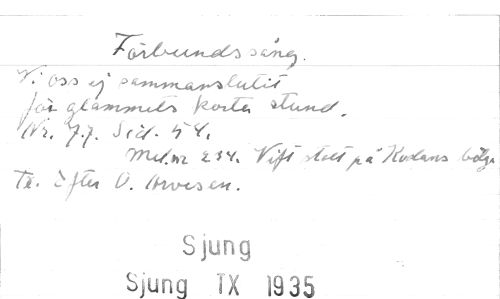 Förbundssång.
Vi oss ej sammanslutit
för glammets korta stund.
Nr. 77. Sid. 54.
Mel. nr 234. Vift stolt på Kodans bölja
Tr. Efter O. Arvesen.
Sjung
Sjung TX 1935